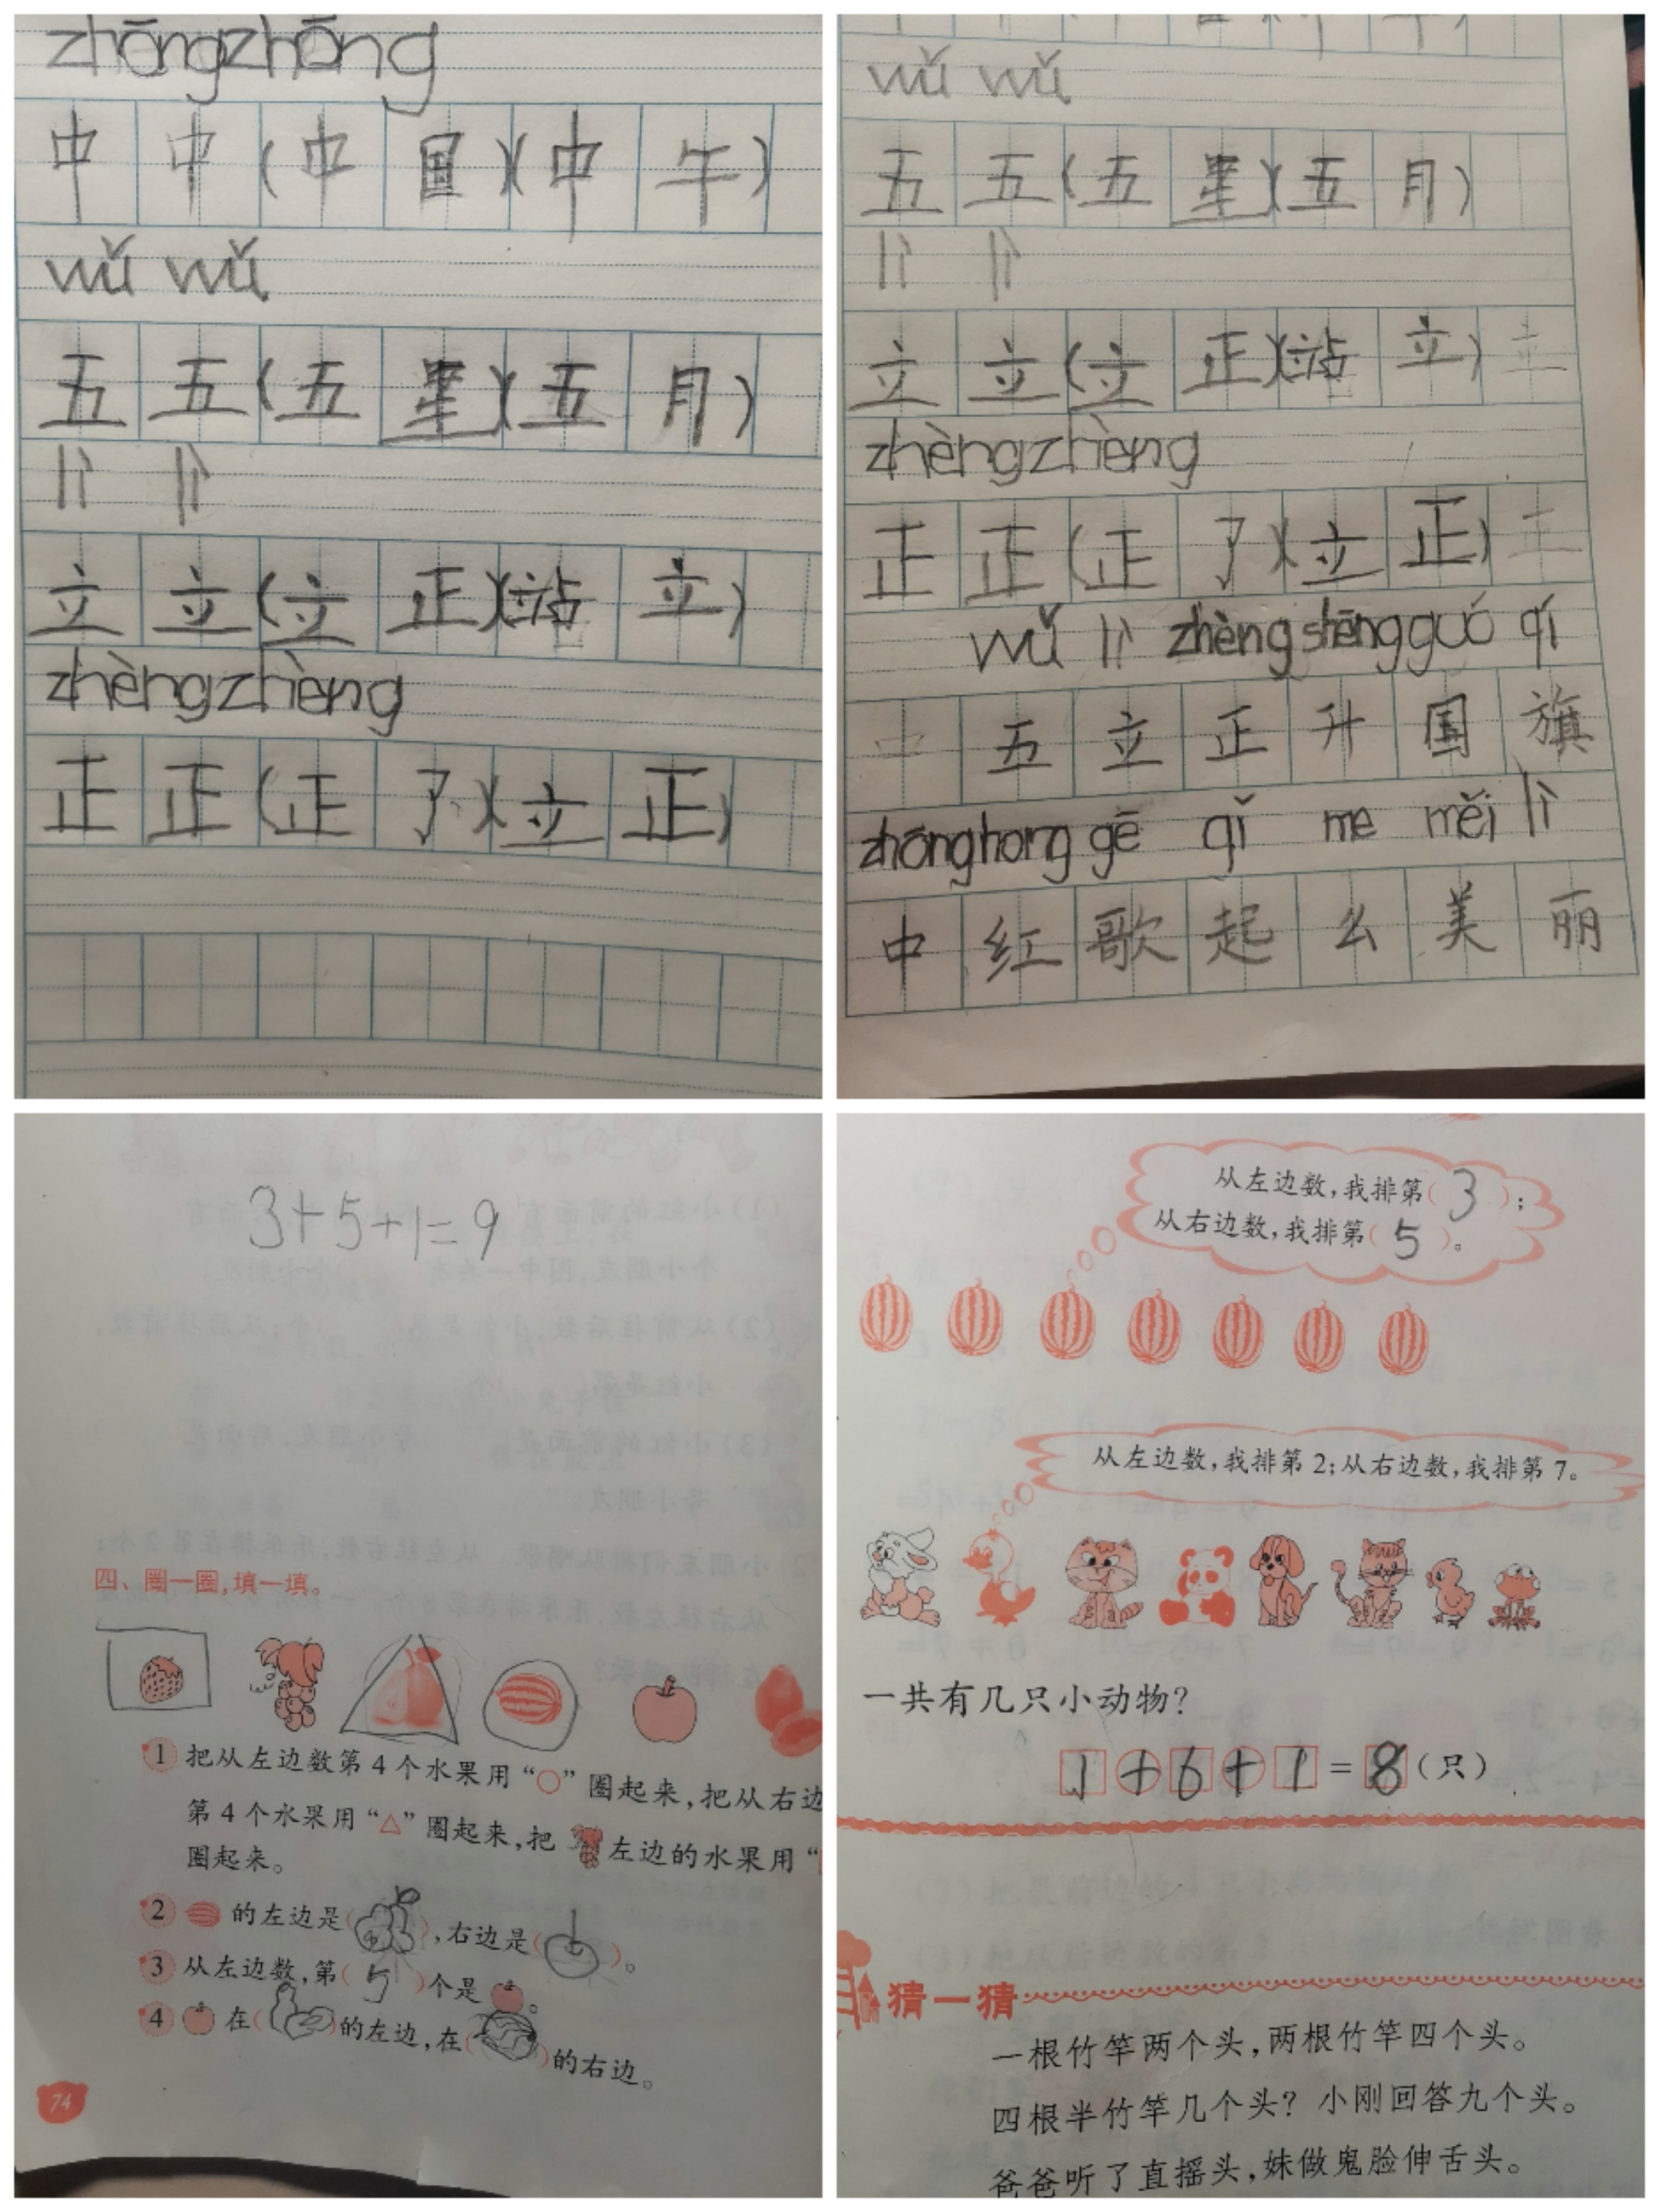 zhōngzhōng
中中(中国)(中午)
wǔ wǔ
五五(五星)(五月)
lì lì
立立(立正)(站立)
zhèngzhèng
正正(正了)(立正)
wǔ wǔ
五五(五星)(五月)
lì lì
立立(立正)(站立)
zhèngzhèng
正正(正了)(立正)
wǔ lì zhèng shēng guó qí
中五立正升国旗
zhōng hong gē qǐ me měi lì
中红歌起么美丽
3+5+1=9
四、圈一圈,填一填。
1 把从左边数第4个水果用“○”圈起来,把从右边
第4个水果用“△”圈起来,把 左边的水果用“
圈起来。
2 的左边是( ),右边是( )。
3 从左边数,第(5)个是 。
4 在( )的左边,在( )的右边。
74
从左边数,我排第(3);
从右边数,我排第(5)。
从左边数,我排第2;从右边数,我排第7。
一共有几只小动物?
1+6+1=8(只)
猜一猜
一根竹竿两个头,两根竹竿四个头。
四根半竹竿几个头?小刚回答九个头。
爸爸听了直摇头,妹做鬼脸伸舌头。